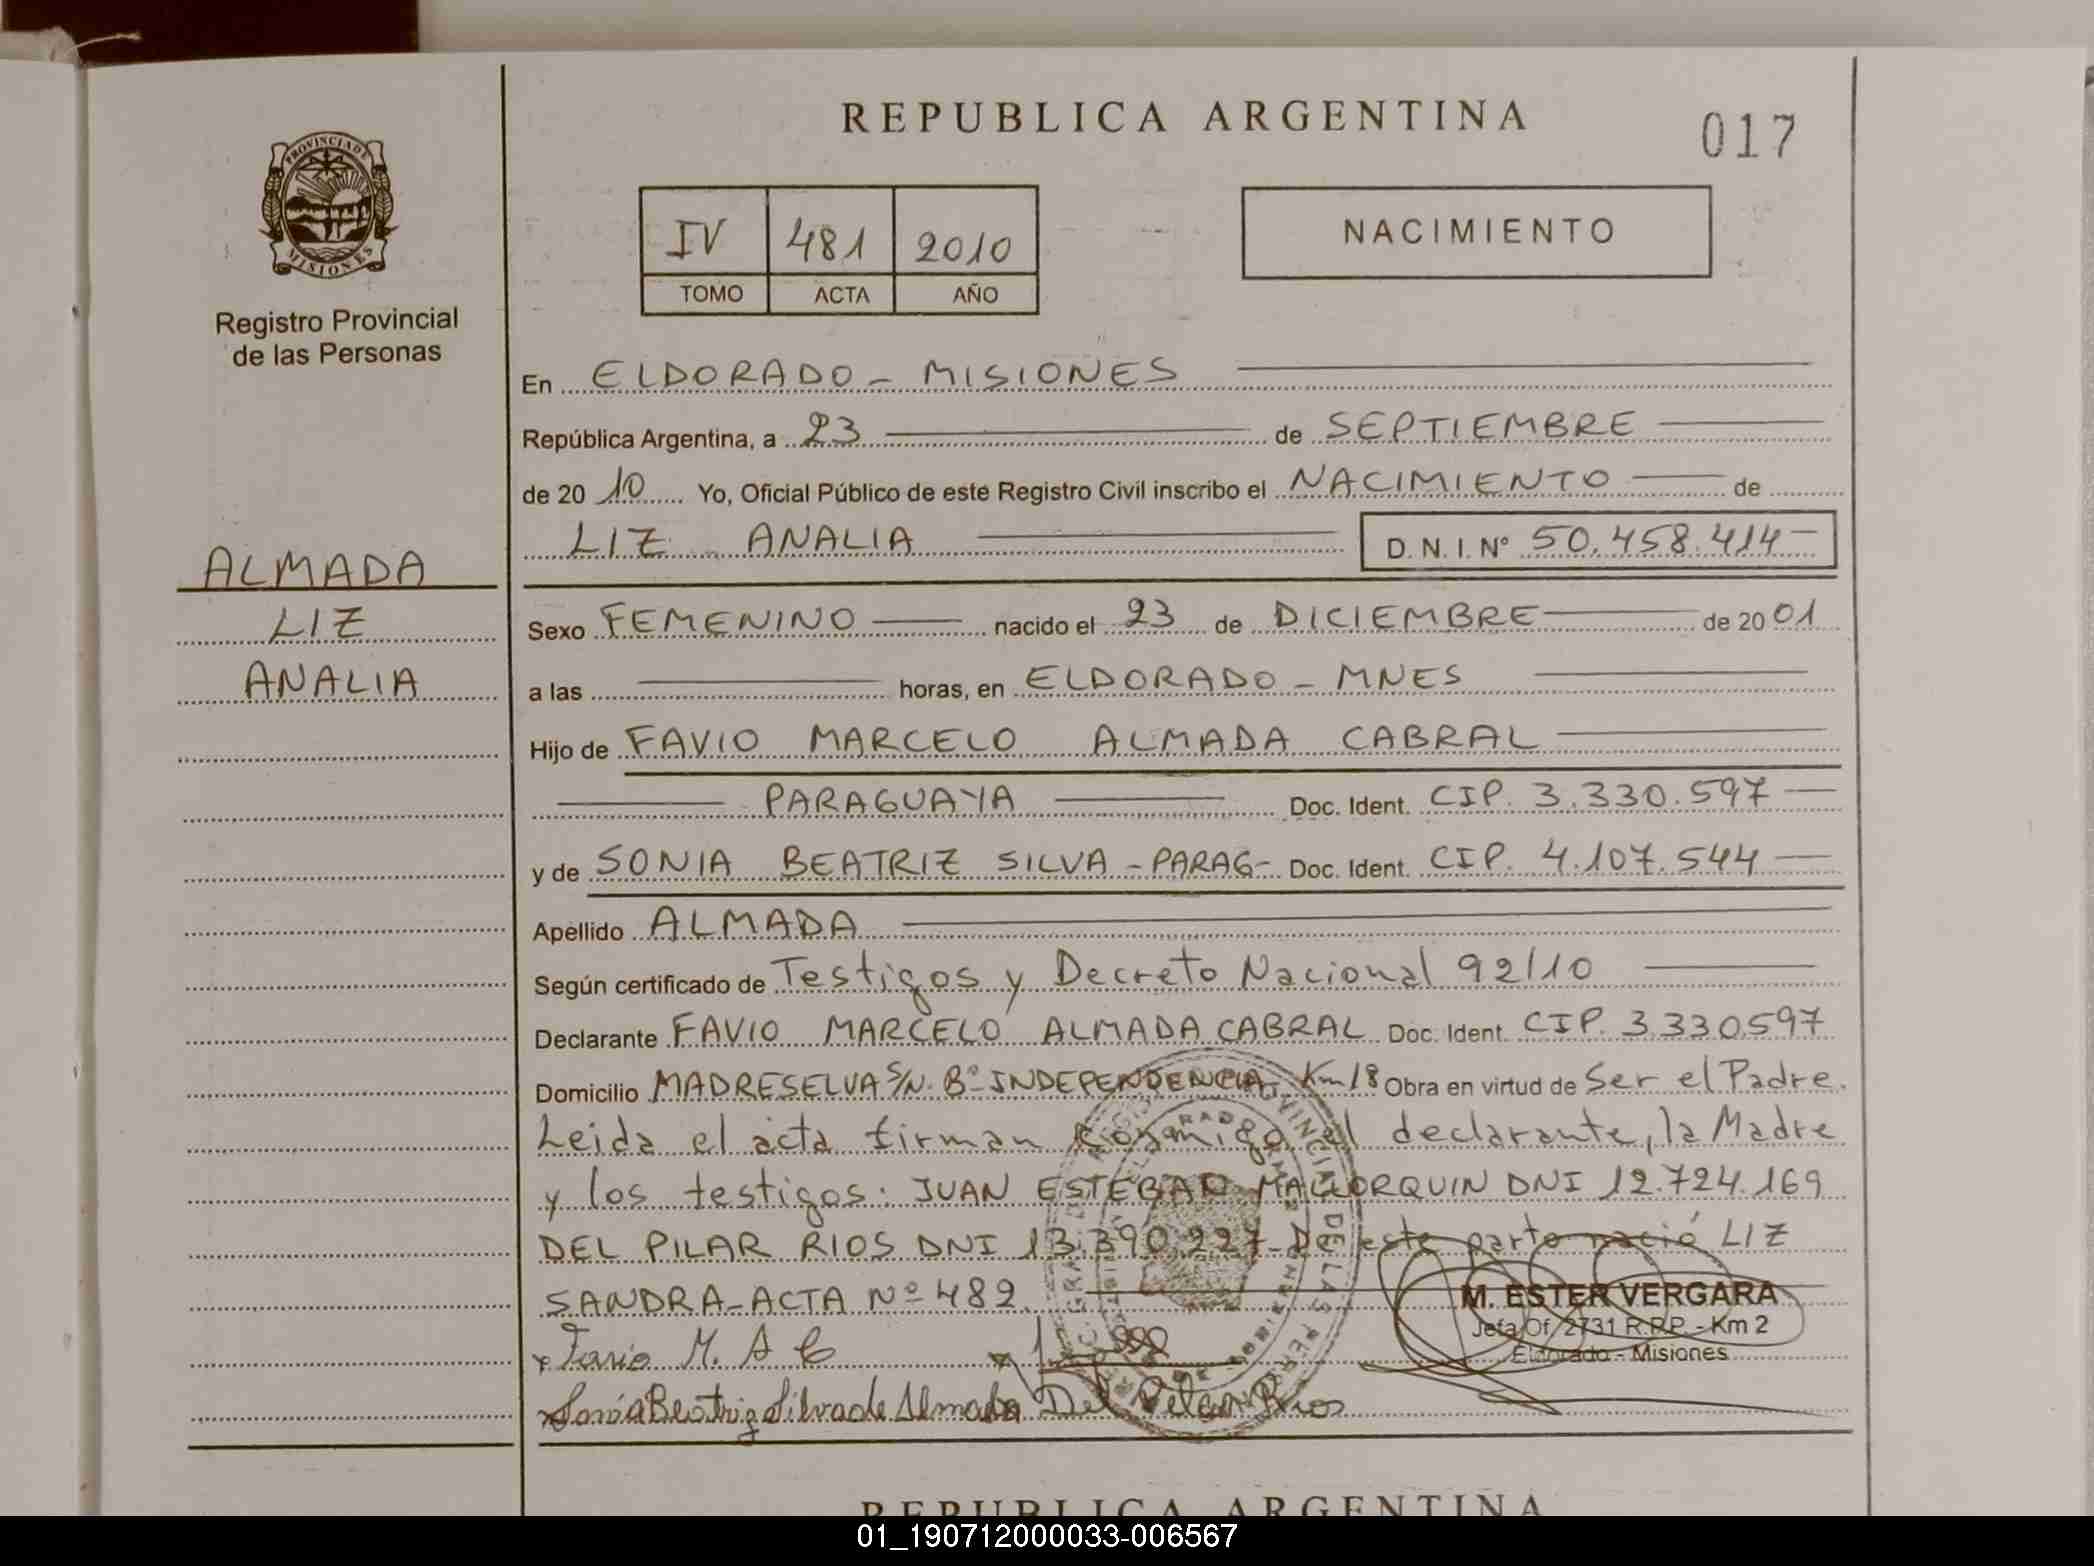 REPUBLICA ARGENTINA
017
PROVINCIA DE
MISIONES
Registro Provincial
de las Personas
IV 481 2010
TOMO ACTA AÑO
NACIMIENTO
En ELDORADO - MISIONES
República Argentina, a 23 de SEPTIEMBRE
de 20 10 Yo, Oficial Público de este Registro Civil inscribo el NACIMIENTO de
LIZ ANALIA D. N. I. Nº 50.458.414
ALMADA
LIZ
ANALIA
Sexo FEMENINO nacido el 23 de DICIEMBRE de 20 01
a las horas, en ELDORADO - MNES
Hijo de FAVIO MARCELO ALMADA CABRAL
PARAGUAYA Doc. Ident. CIP. 3.330.597
y de SONIA BEATRIZ SILVA - PARAG- Doc. Ident. CIP. 4.107.544
Apellido ALMADA
Según certificado de Testigos y Decreto Nacional 92/10
Declarante FAVIO MARCELO ALMADA CABRAL Doc. Ident. CIP. 3.330.597
Domicilio MADRESELVA S/N. Bº INDEPENDENCIA Km 18 Obra en virtud de Ser el Padre.
Leida el acta firman conmigo el declarante, la Madre
y los testigos: JUAN ESTEBAN MALLORQUIN DNI 12.724.169
DEL PILAR RIOS DNI 13.390.227- De este parto nació LIZ
SANDRA - ACTA Nº 482
M. ESTER VERGARA
Jefa Of. 2731 R.P.P. - Km 2
Eldorado - Misiones
x Favio M. A C
x Sonia Beatriz Silva de Almada Del Pilar Rios
REPUBLICA ARGENTINA
01_190712000033-006567